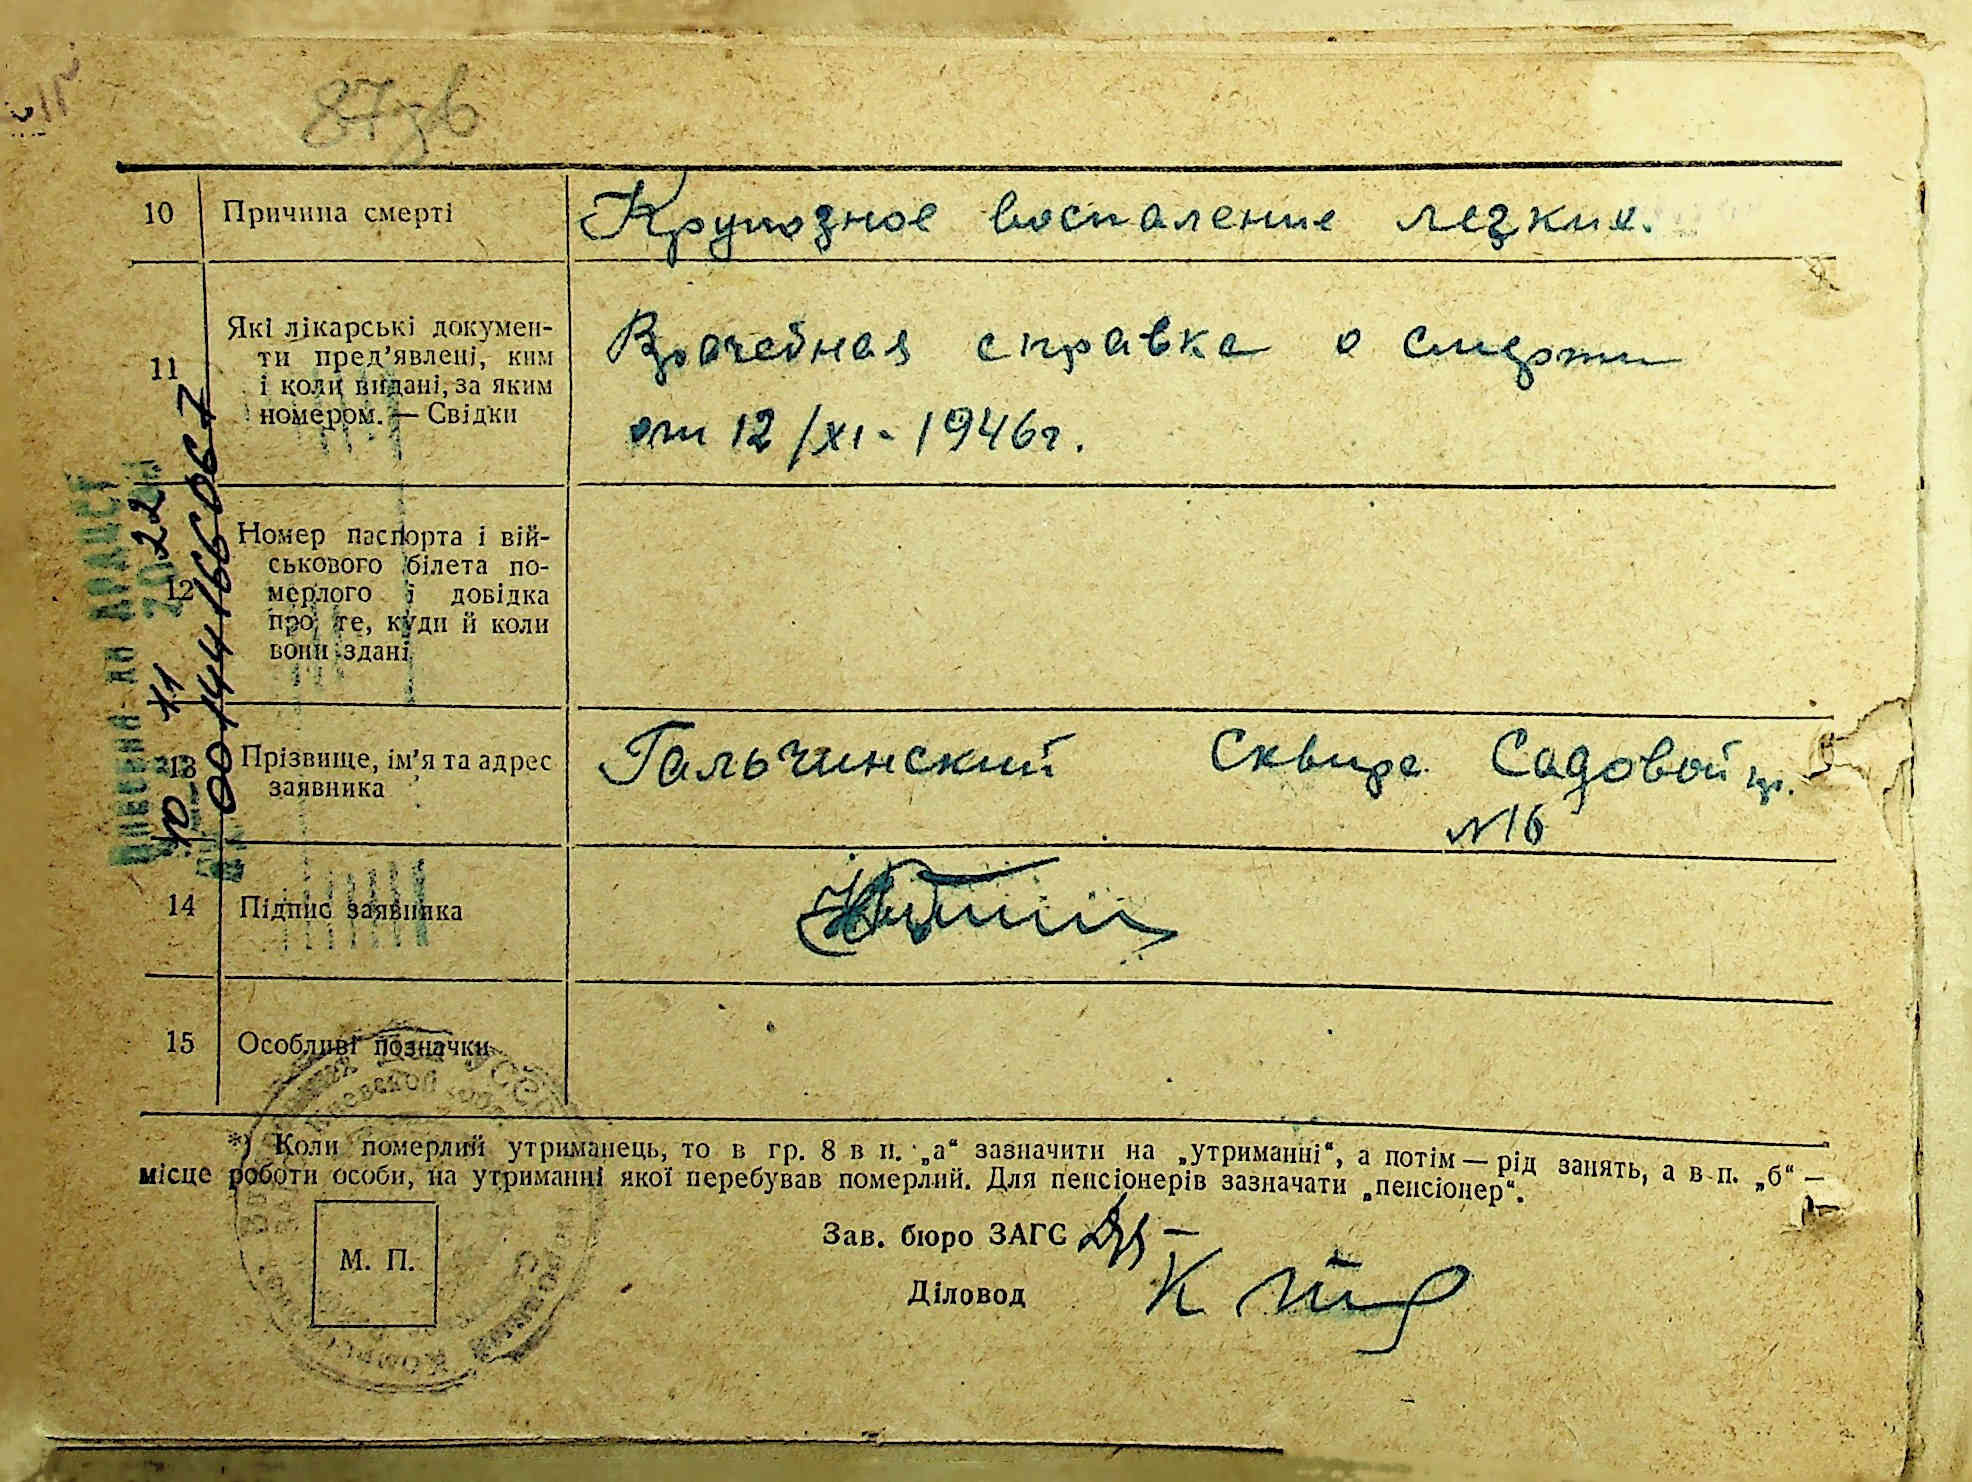 87зв
10 Причина смерті Крупозное воспаление легких.
11 Які лікарські докумен-
ти пред'явлені, ким
і коли видані, за яким
номером. — Свідки
Врачебная справка о смерти
от 12/XI - 1946г.
12 Номер паспорта і вій-
ськового білета по-
мерлого і довідка
про те, куди й коли
вони здані
13 Прізвище, ім'я та адрес
заявника
Гальчинский Сквира Садовой
N16
14 Підпис заявника
15 Особливі позначки
*) Коли померлий утриманець, то в гр. 8 в п. „а“ зазначити на „утриманні“, а потім — рід занять, а в п. „б“ —
місце роботи особи, на утриманні якої перебував померлий. Для пенсіонерів зазначати „пенсіонер“.
Зав. бюро ЗАГС
М. П.
Діловод
Внесено до ДРАЦСГ
10 11 2022
00144166067